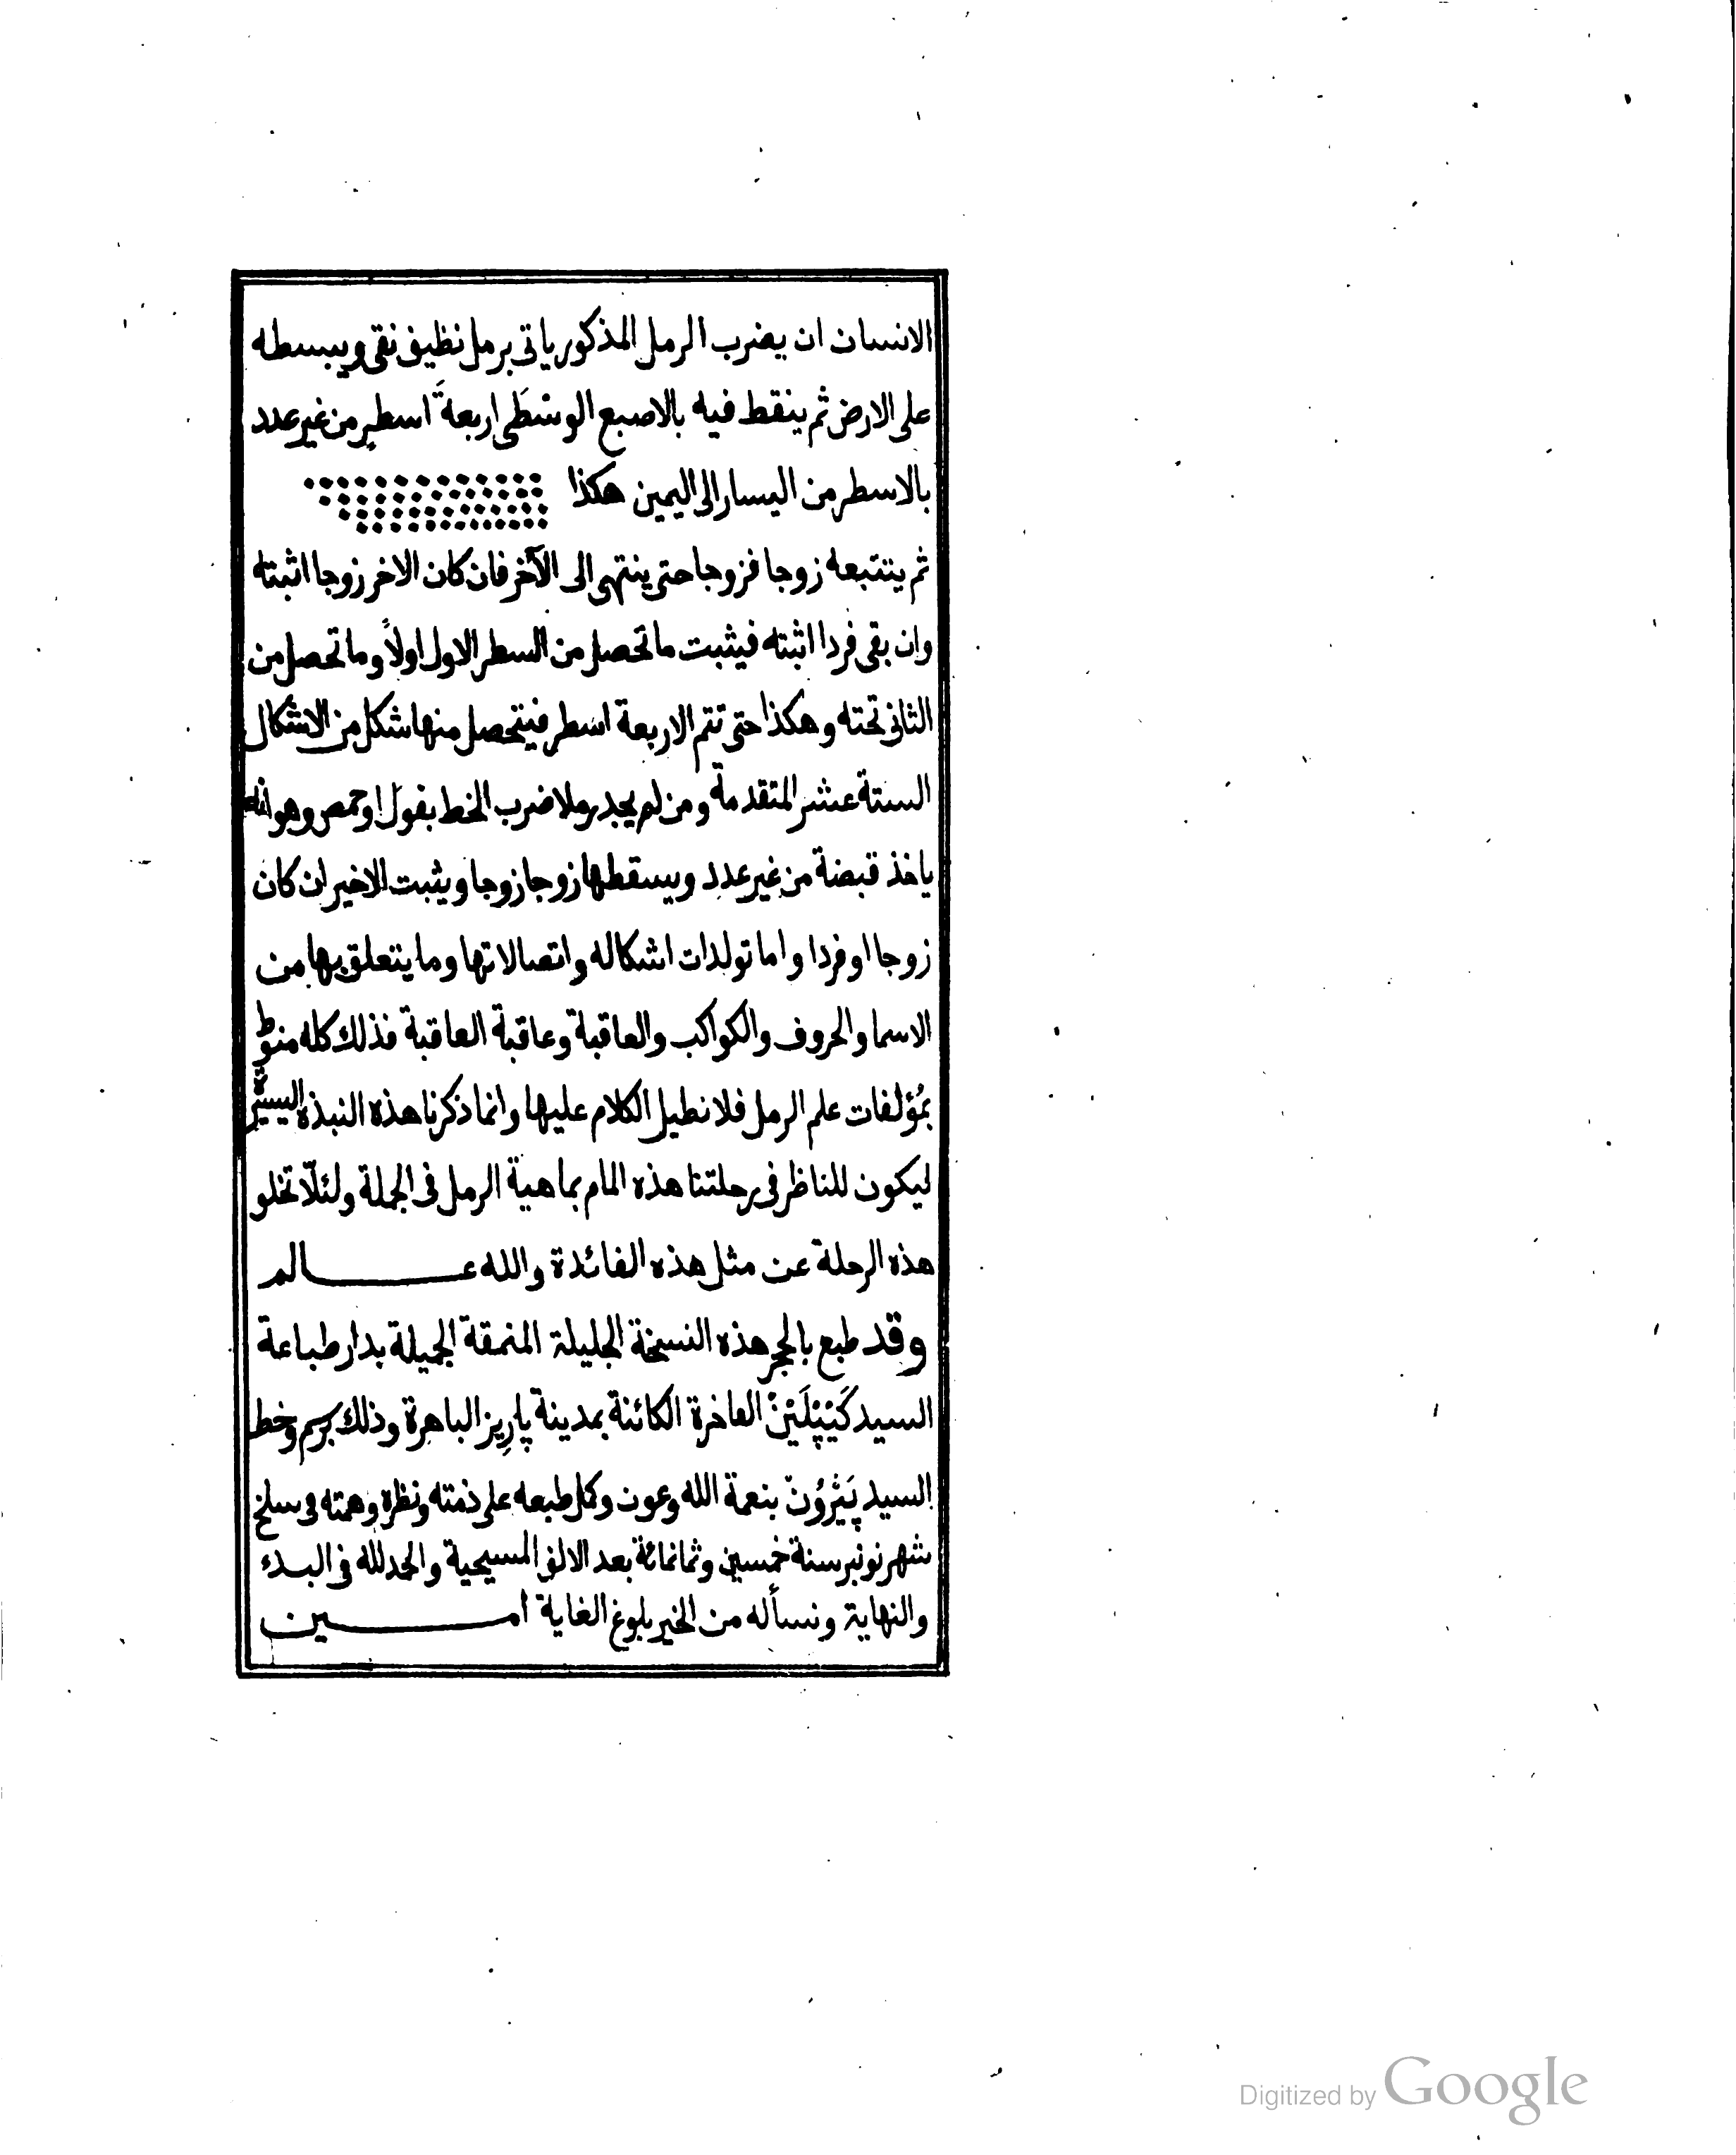 الانسان ان يضرب الرمل المذكور ياتى برمل نظيف نقى ويبسطه
على الارض ثم ينقط فيه بالاصبع الوسْطَى اربعةَ اسطر من غير عدد
بالاسطر من اليسار الى اليمين هكذا
ثم يتتبعه زوجا فزوجا حتى ينتهى الى الآخر فان كان الاخر زوجا اثبته
وان بقى فردا اثبته فيثبت ما تحصل من السطر الاول اولاً وما تحصل من
الثانى تحته وهكذا حتى تتم الاربعة اسطر فيتحصل منها شكل من الاشكال
الستة عشر المتقدمة ومن لم يجد رملا ضرب الخط بفول او حمص وهو انه
ياخذ قبضة من غير عدد ويسقطها زوجا زوجا ويثبت الاخير ان كان
زوجا او فردا واما تولدات اشكاله واتصالاتها وما يتعلق بها من
الاسما والحروف والكواكب والعاقبة وعاقبة العاقبة فذلك كله منوط
بمُؤلفات علم الرمل فلا نطيل الكلام عليها وانما ذكرنا هذه النبذه اليسيرة
ليكون للناظر فى رحلتنا هذه المام بماهية الرمل فى الجملة ولئلّا تخلو
هذه الرحلة عن مثل هذه الفائدة والله عـــــالم
وقد طبع بالحجر هذه النسخة الجليلة المنمقة الجميلة بدار طباعة
السيد كَيْپْلَيْنْ الفاخرة الكائنة بمدينة پاريز الباهرة وذلك برسم وخط
السيد پَيْرُونْ بنعمة الله وعون وكمل طبعه على ذمته ونظره وهمته فى سلخ
شهر نونبر سنة خمسين وثمانمائة بعد الالف المسيحية والحمد لله فى البدء
والنهاية ونسأله من الخير بلوغ الغاية امـــــين
Digitized by Google